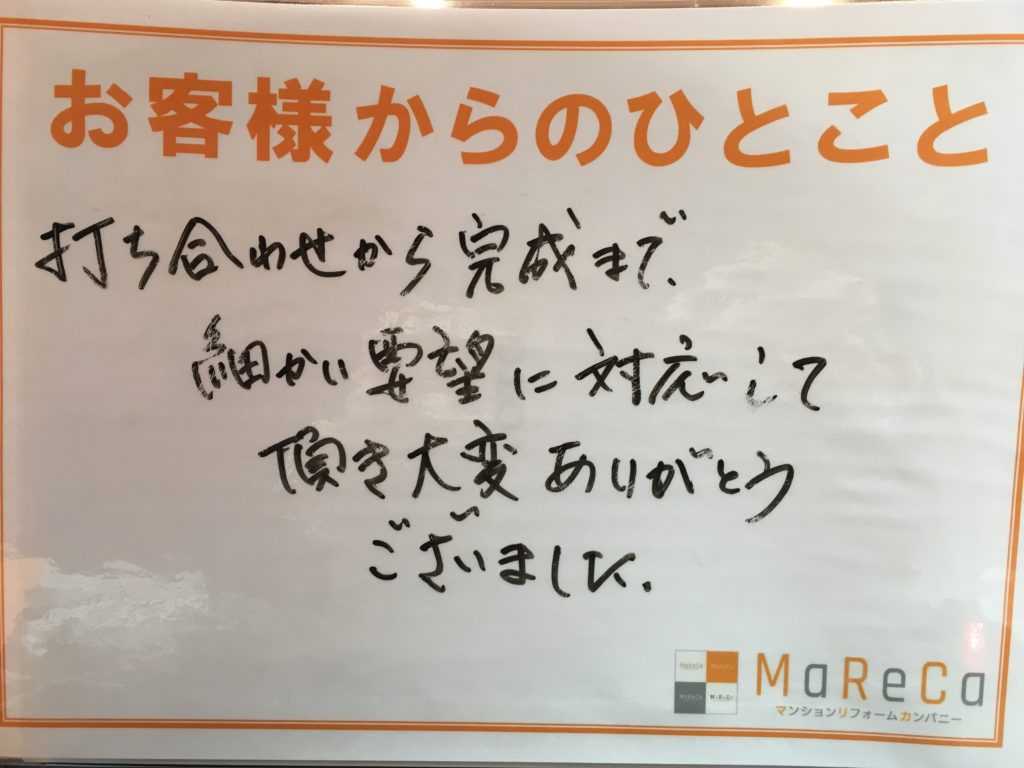 お客様からのひとこと
打ち合わせから完成まで、
細かい要望に対応して
頂き大変ありがとう
ございました.
MaReCa
マンションリフォームカンパニー